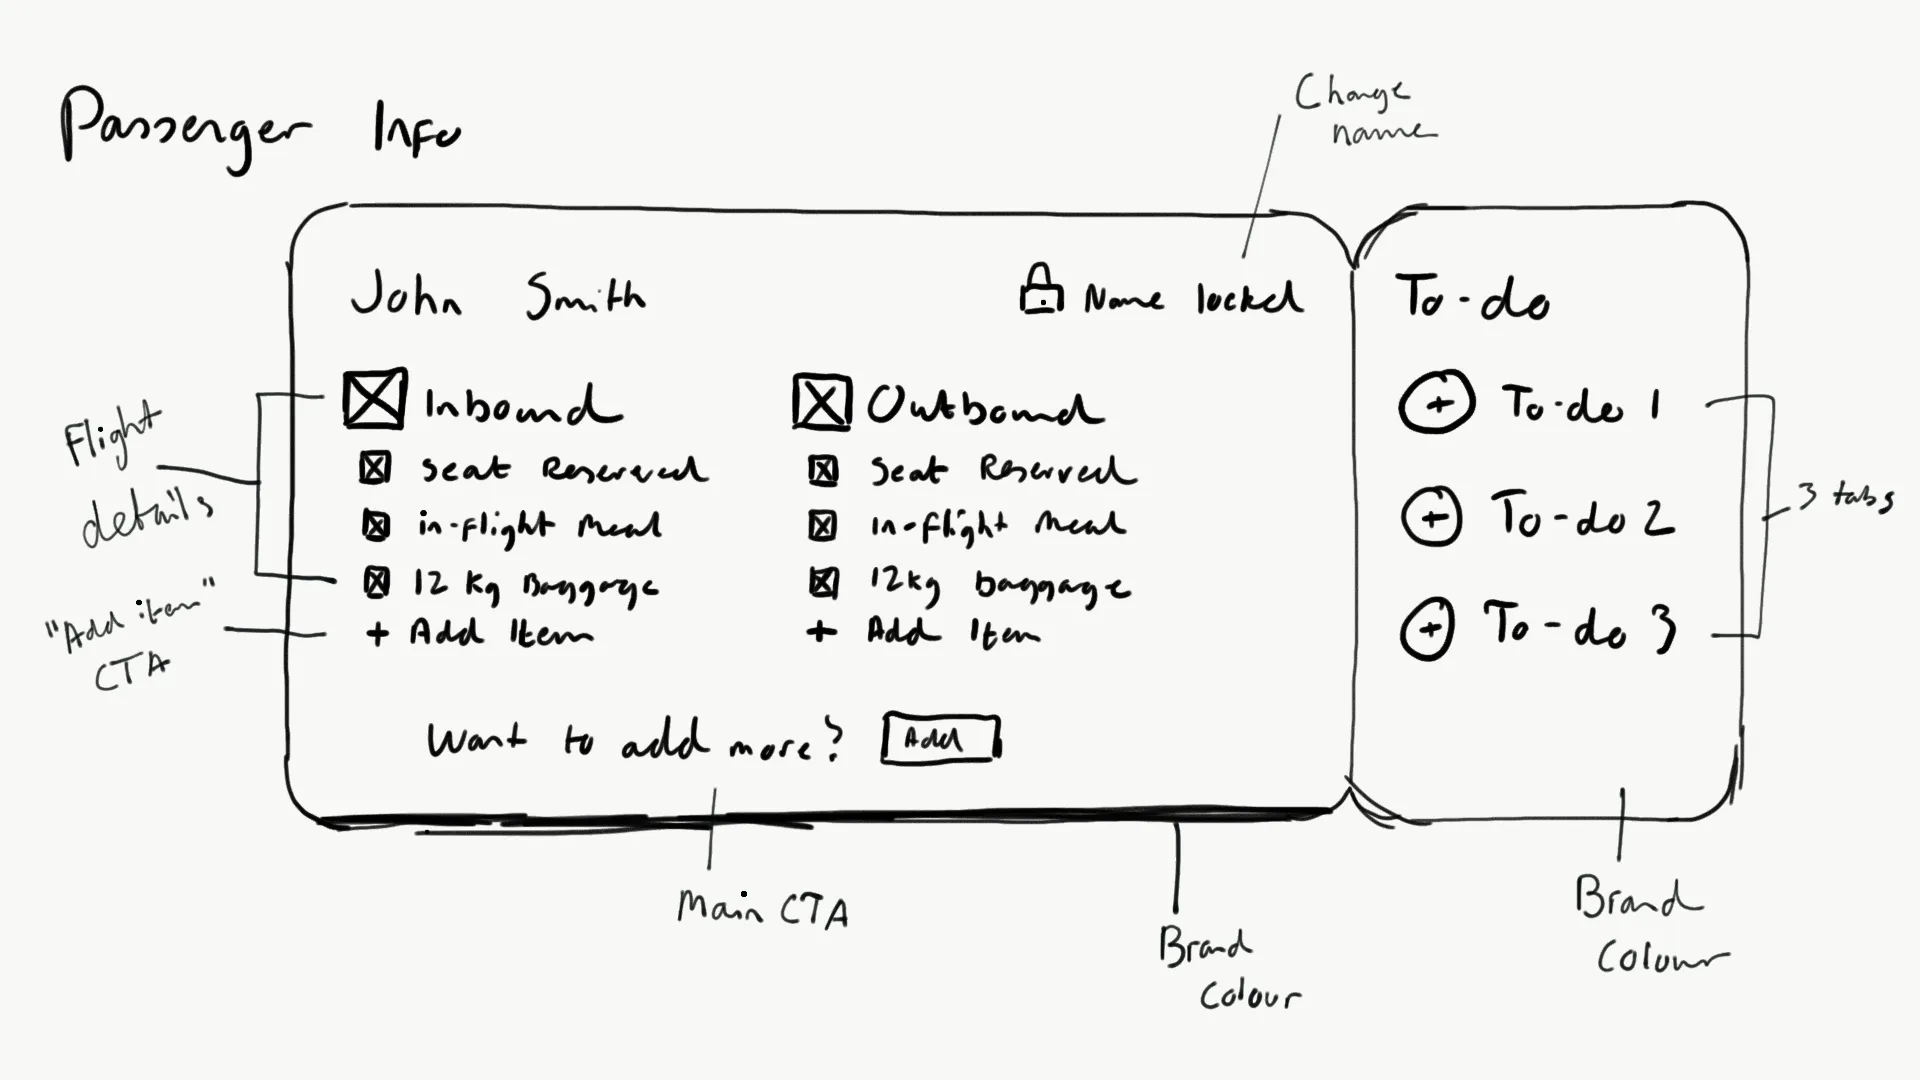 Passenger Info
Change
name
John Smith
Name locked
To-do
Inbound
Outbound
To-do 1
Seat Reserved
Seat Reserved
in-flight meal
in-flight meal
To-do 2
12 Kg Baggage
12kg baggage
+ Add Item
+ Add Item
To-do 3
Want to add more? Add
Flight
details
"Add item"
CTA
3 tabs
Main CTA
Brand
Colour
Brand
Colour